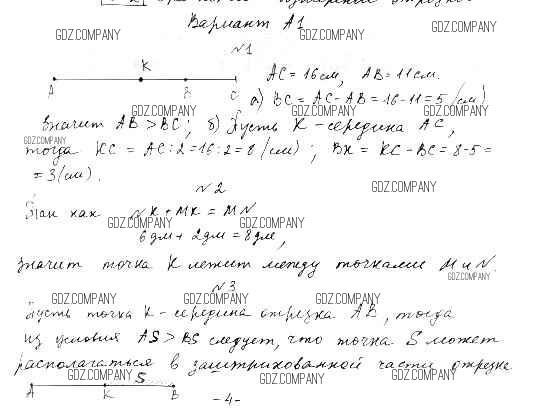 Вариант А1
GDZ.COMPANY
GDZ.COMPANY
GDZ.COMPANY
N1
K
A B C
AC = 16 см, AB = 11 см.
а) BC = AC - AB = 16 - 11 = 5 (см)
GDZ.COMPANY
GDZ.COMPANY
GDZ.COMPANY
значит AB > BC; б) Пусть K - середина AC,
GDZ.COMPANY
тогда KC = AC : 2 = 16 : 2 = 8 (см); BK = KC - BC = 8 - 5 =
= 3 (см).
GDZ.COMPANY
N2
Так как NK + MK = MN
GDZ.COMPANY
GDZ.COMPANY
6 дм + 2 дм = 8 дм,
значит точка K лежит между точками M и N.
GDZ.COMPANY
N3
GDZ.COMPANY
GDZ.COMPANY
GDZ.COMPANY
Пусть точка K - середина отрезка AB, тогда
из условия AS > BS следует, что точка S может
располагаться в заштрихованной части отрезка
GDZ.COMPANY
GDZ.COMPANY
GDZ.COMPANY
S
A K B
-4-